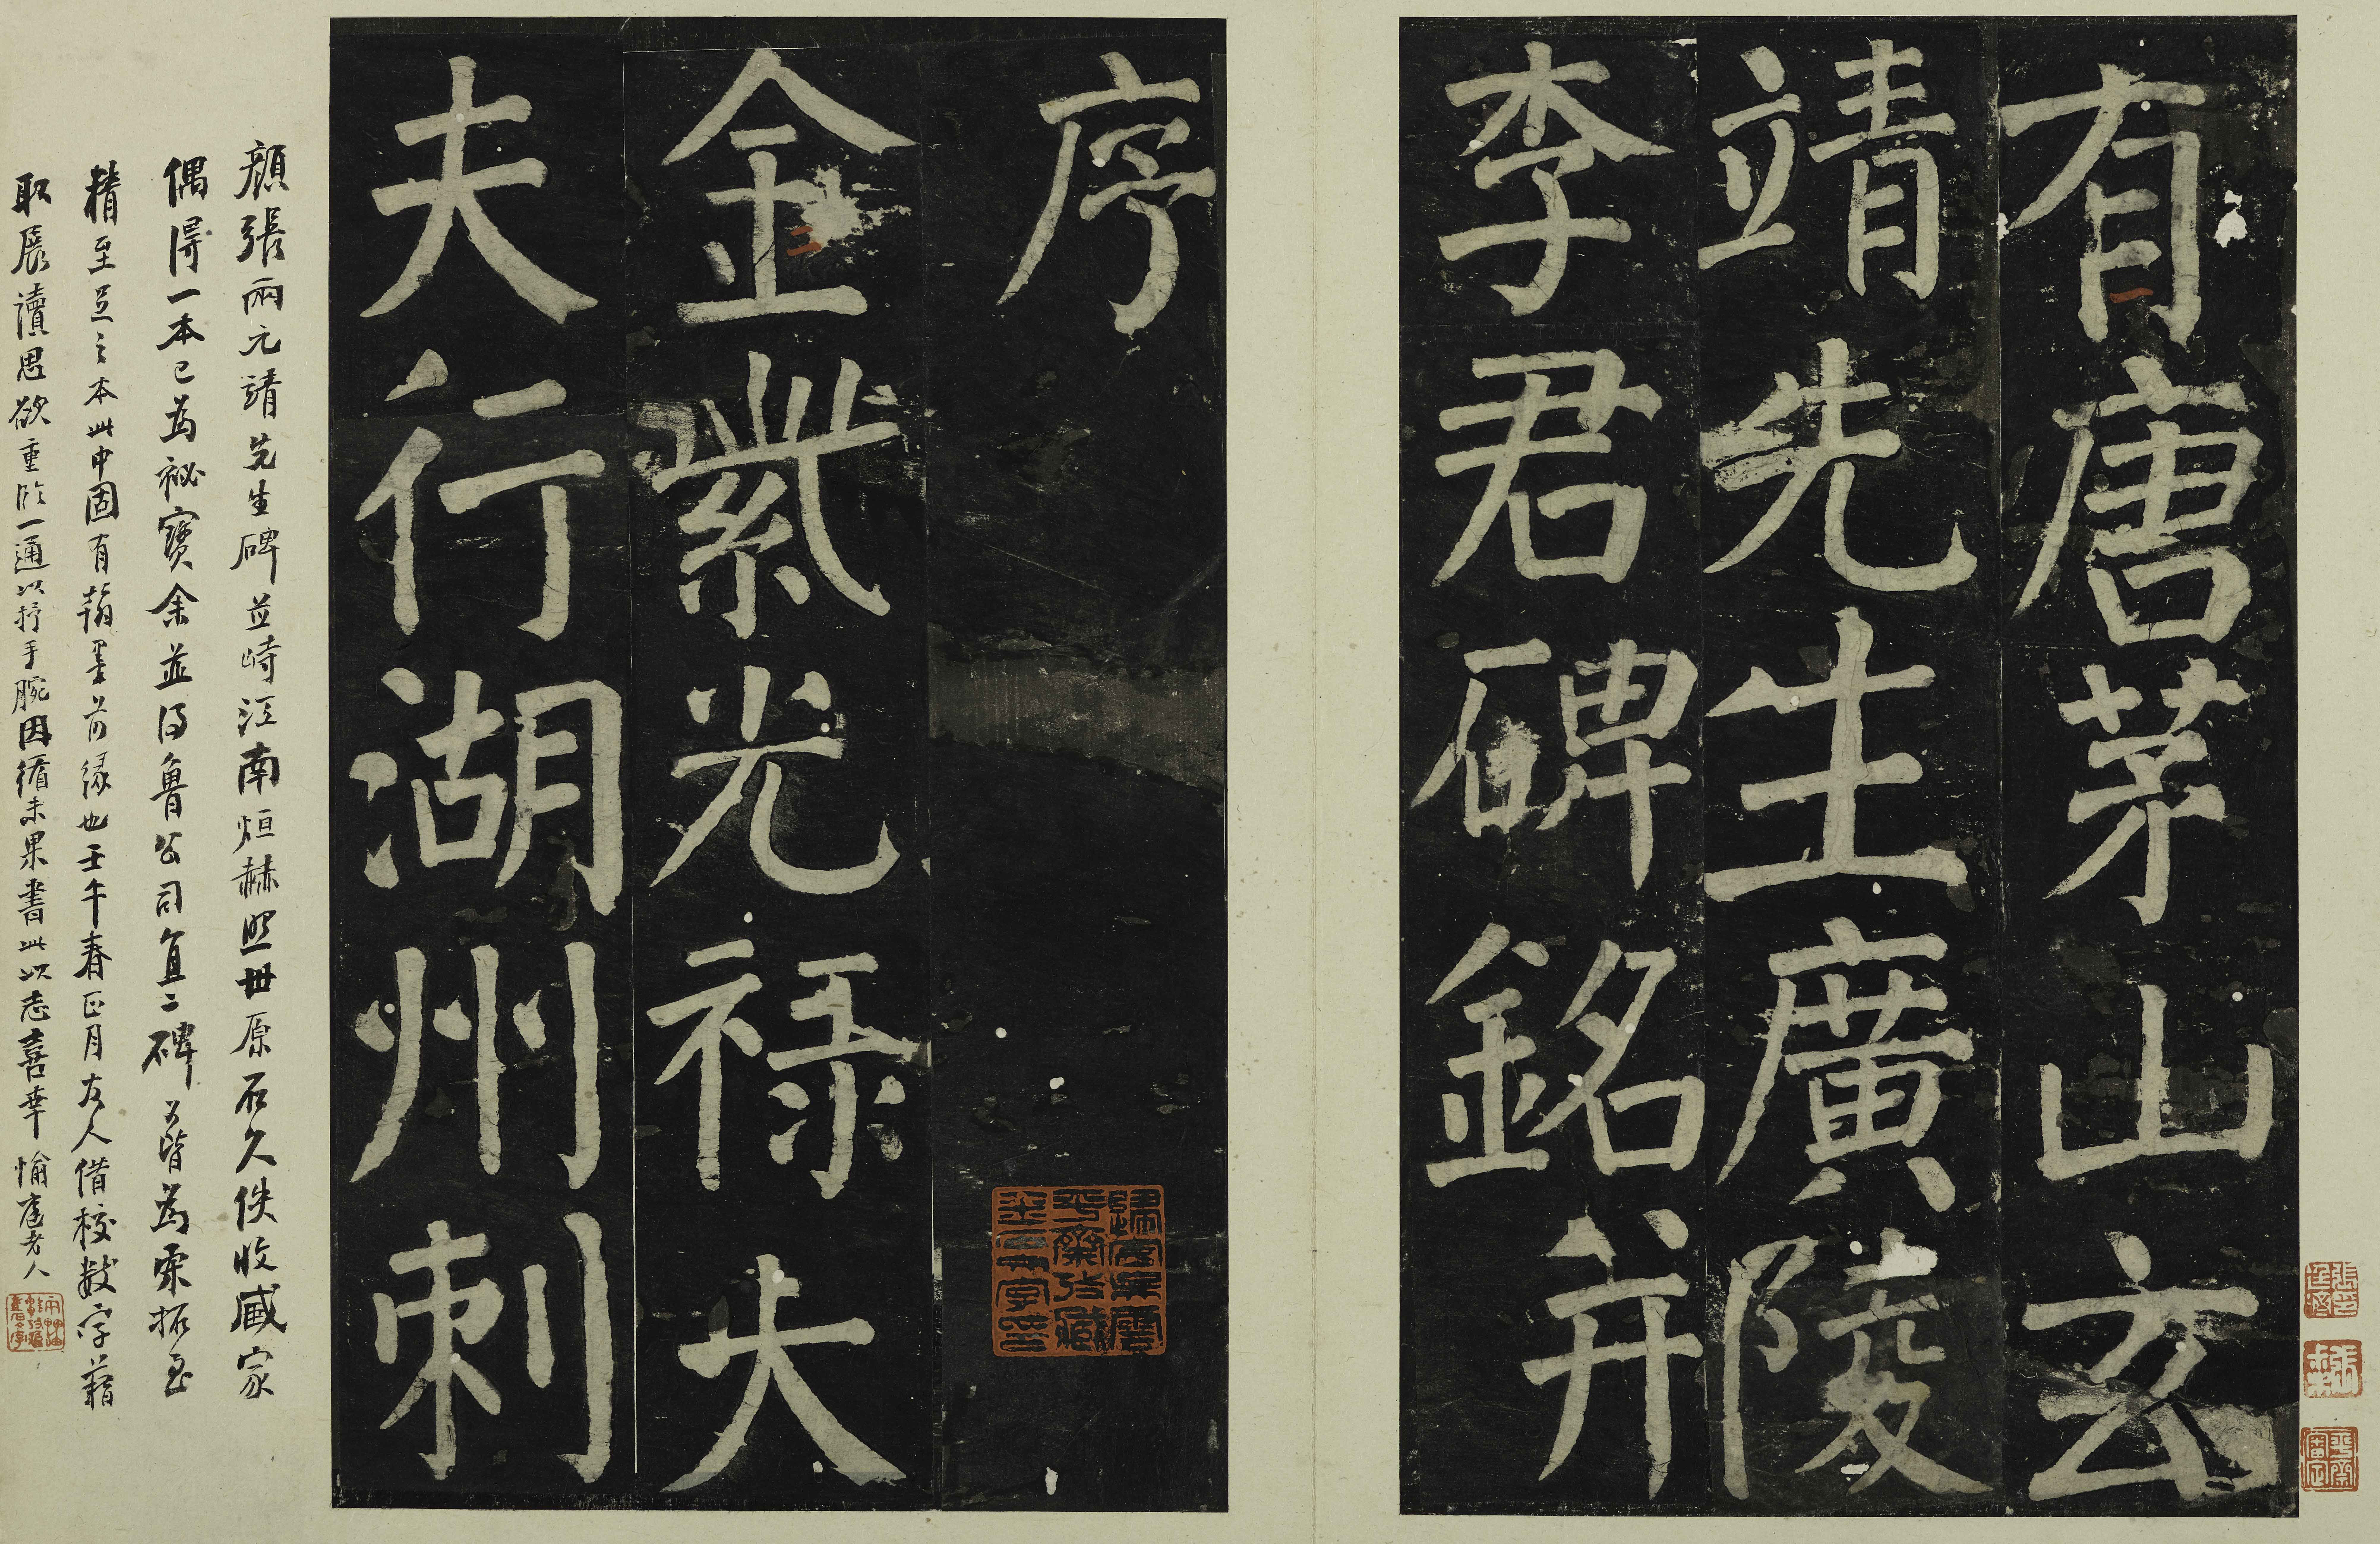 有唐茅山玄
靖先生廣陵
李君碑銘并
序
金紫光祿大
夫行湖州刺
顏張兩元靖先生碑並峙江南烜赫照世原石久佚收臧家
偶得一本已為祕寶余並得魯公司直二碑皆為宋拓至
精至足之本此中固有翰墨前緣也壬午春正月友人借校數字藉
取展讀思欲重臨一通以抒手腕因循未果書此以志喜幸
老人